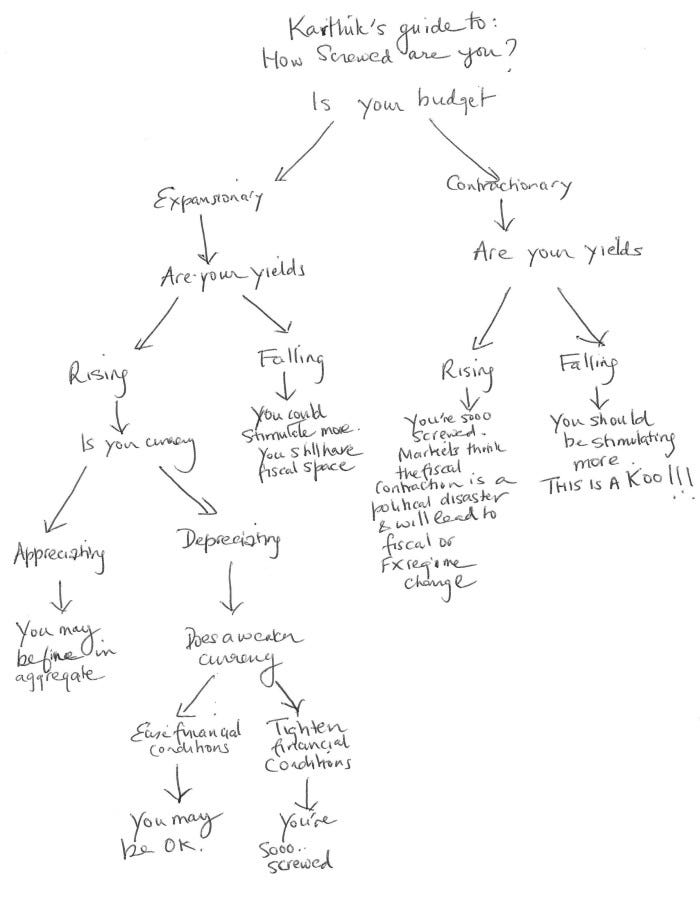 Karthik's guide to:
How Screwed are you?
Is your budget
Expansionary
Contractionary
Are your yields
Are your yields
Rising
Falling
Rising
Falling
Is you curreny
You could
stimulate more.
You still have
fiscal space
You're sooo
screwed.
Markets think
the fiscal
contraction is a
political disaster
& will lead to
fiscal or
FX regime
change
You should
be stimulating
more.
THIS IS A KOO!!!
Appreciating
Depreciating
You may
be fine in
aggregate
Does a weaker
curreny
Ease financial
conditions
Tighten
financial
conditions
You may
be OK.
You're
sooo..
screwed